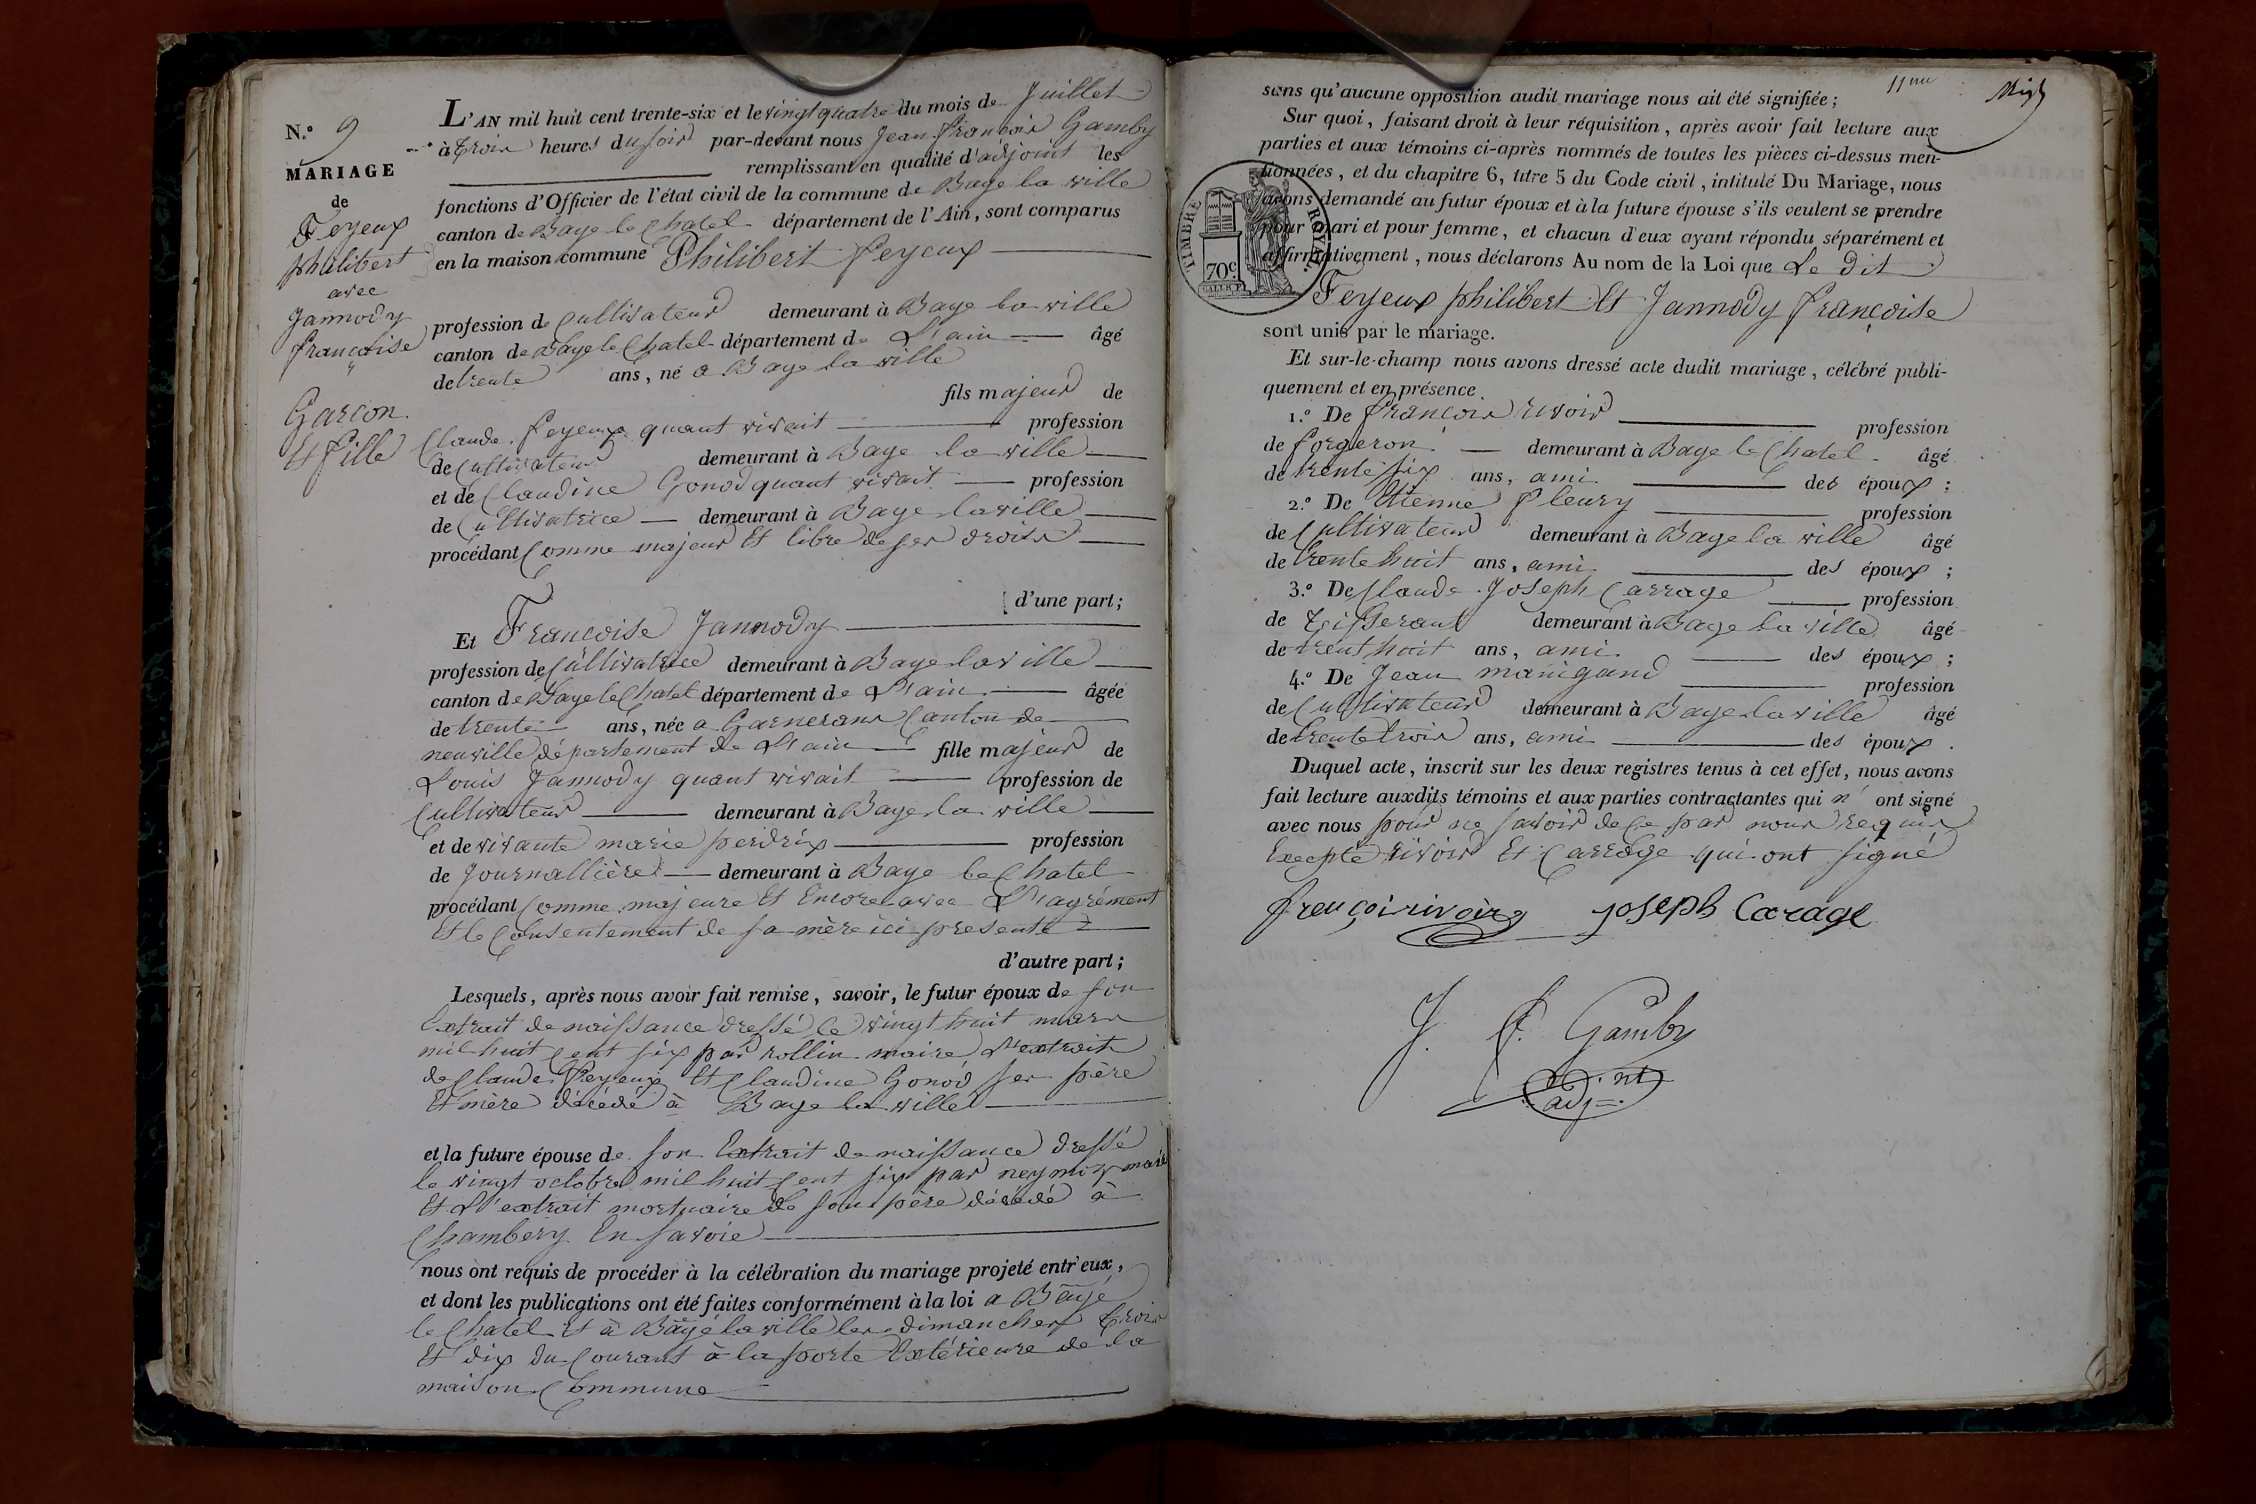 N.o 9
MARIAGE
de
Feyeux
philibert
avec
Jannody
françoise
Garcon
Et fille
L'AN mil huit cent trente-six et le vingt quatre du mois de Juillet
à trois heures du soir par-devant nous Jean françois Gamby
remplissant en qualité d'adjoint les
fonctions d'Officier de l'état civil de la commune de Bage la ville
canton de Bage le Chatel département de l'Ain, sont comparus
en la maison commune Philibert feyeux
profession de Cultivateur demeurant à Bage la ville
canton de Bage le Chatel département de L'ain âgé
de trente ans, né a Bage la ville
fils majeur de
Claude feyeux quant vivait profession
de Cultivateur demeurant à Bage la ville
et de Claudine Gonod quant vivait profession
de Cultivatrice demeurant à Bage la ville
procédant Comme majeur Et libre de ses droits
d'une part;
Et Francoise Jannody
profession de Cultivatrice demeurant à Bage la ville
canton de Bage le Chatel département de L'ain âgée
de trente ans, née a Garnerans Canton de
neuville département de L'ain fille majeur de
Louis Jannody quant vivait profession de
Cultivateur demeurant à Bage la ville
et de vivante marie perdrix profession
de Journallière demeurant à Bage le Chatel
procédant Comme majeure Et Encore avec L'agrément
Et le Consentement de sa mère ici présente
d'autre part;
Lesquels, après nous avoir fait remise, savoir, le futur époux de son
Extrait de naissance dressé le vingt huit mars
mil huit Cent six par rollin maire L'extrait
de Claude feyeux Et Claudine Gonod ses père
Et mère décédé à Bage la ville
et la future épouse de son Extrait de naissance dressé
le vingt octobre mil huit Cent six par neymoz maire
Et L'extrait mortuaire de son père décédé à
Chambery En savoie
nous ont requis de procéder à la célébration du mariage projeté entr'eux,
et dont les publications ont été faites conformément à la loi a Bâgé
le Chatel Et à Bâgé la ville les dimanches trois
Et dix du Courant à la porte Extérieure de la
maison Commune
11me
sans qu'aucune opposition audit mariage nous ait été signifiée;
Sur quoi, faisant droit à leur réquisition, après avoir fait lecture aux
parties et aux témoins ci-après nommés de toutes les pièces ci-dessus men-
tionnées, et du chapitre 6, titre 5 du Code civil, intitulé Du Mariage, nous
avons demandé au futur époux et à la future épouse s'ils veulent se prendre
pour mari et pour femme, et chacun d'eux ayant répondu séparément et
affirmativement, nous déclarons Au nom de la Loi que Le dit
TIMBRE ROYAL
70c
Feyeux philibert Et Jannody françoise
sont unis par le mariage.
Et sur-le-champ nous avons dressé acte dudit mariage, célébré publi-
quement et en présence
1.o De françois rivoir profession
de forgeron demeurant à Bage le Chatel âgé
de trente six ans, ami des époux;
2.o De Etienne fleury profession
de Cultivateur demeurant à Bage la ville âgé
de trente huit ans, ami des époux;
3.o De Claude Joseph Carrage profession
de Tisserant demeurant à Bage la ville âgé
de trent huit ans, ami des époux;
4.o De Jean manigand profession
de Cultivateur demeurant à Bage la ville âgé
de trente trois ans, ami des époux.
Duquel acte, inscrit sur les deux registres tenus à cet effet, nous avons
fait lecture auxdits témoins et aux parties contractantes qui n' ont signé
avec nous pour ne savoir de Ce par nous requis
Excepté rivoir Et Carrage qui ont signé
françoi rivoire joseph Carage
J. f. Gamby
adjnt